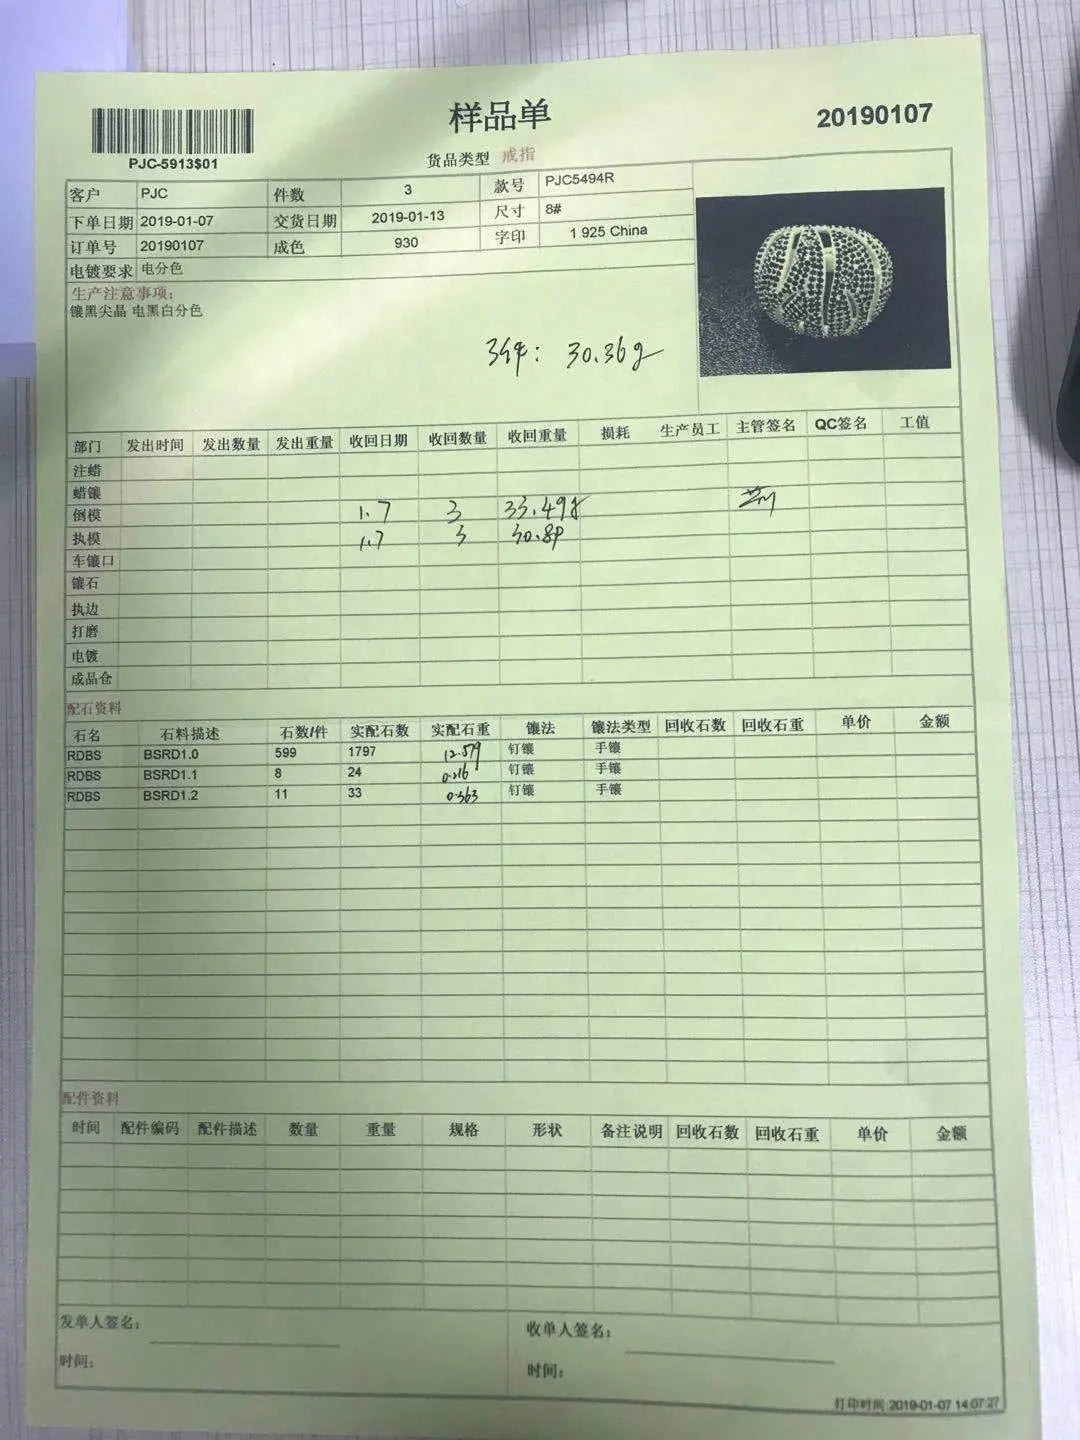 样品单
20190107
PJC-5913$01
货品类型 戒指
客户 PJC 件数 3 款号 PJC5494R
下单日期 2019-01-07 交货日期 2019-01-13 尺寸 8#
订单号 20190107 成色 930 字印 1 925 China
电镀要求 电分色
生产注意事项：
镶黑尖晶 电黑白分色
3件： 30.36g
部门 发出时间 发出数量 发出重量 收回日期 收回数量 收回重量 损耗 生产员工 主管签名 QC签名 工值
注蜡
蜡镶
倒模 1.7 3 33.49g
执模 1.7 3
车镶口
镶石
执边
打磨
电镀
成品仓
配石资料
石名 石料描述 石数/件 实配石数 实配石重 镶法 镶法类型 回收石数 回收石重 单价 金额
RDBS BSRD1.0 599 1797 12.579 钉镶 手镶
RDBS BSRD1.1 8 24 0.216 钉镶 手镶
RDBS BSRD1.2 11 33 0.363 钉镶 手镶
配件资料
时间 配件编码 配件描述 数量 重量 规格 形状 备注说明 回收石数 回收石重 单价 金额
发单人签名： 收单人签名：
时间： 时间：
打印时间 2019-01-07 14:07:27